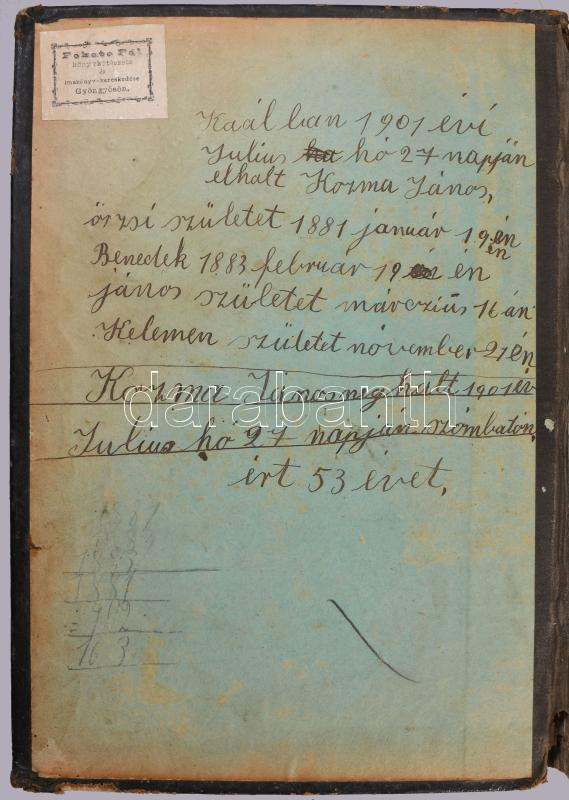 Fekete Pál
könyvkötészete
és
imakönyv-kereskedése
Gyöngyösön.
Kaál ban 1901 évi
Julius ha hó 27 napján
elhalt Kozma János,
örzsi születet 1881 január 19 én
én
Benedek 1883 február 19 én
jános születet márczius 16 án
Kelemen születet november 21 én
Kozma János meg halt 1901 év
Julius hó 27 napján szombaton,
ért 53 évet,
darabanth
163